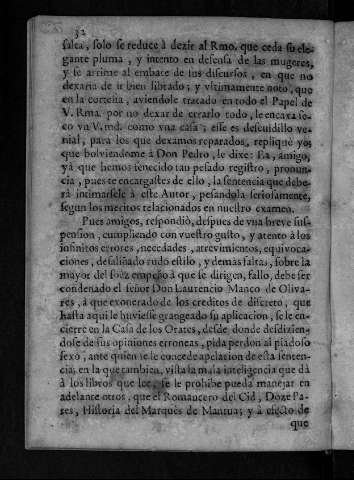 32
falta, solo se reduce à dezir al Rmo. que ceda su ele-
gante pluma, y intento en defensa de las mugeres,
y se arrime al embate de sus discursos, en que no
dexaria de ir bien librado; y vltimamente noto, que
en la cortesia, aviendole tratado en todo el Papel de
V. Rma. por no dexar de errarlo todo, le encaxa se-
co vn V.md. como vna casa; esse es descuidillo ve-
nial, para los que dexamos reparados, repliquè yo;
que bolviendome à Don Pedro, le dixe: Ea, amigo,
yà que hemos fenecido tan pesado registro, pronun-
cia, pues te encargastes de ello, la sentencia que debe-
rà intimarsele à este Autor, pesandola seriosamente,
segun los meritos relacionados en nuestro examen.
Pues amigos, respondiò, despues de vna breve sus-
pension, cumpliendo con vuestro gusto, y atento à los
infinitos errores, necedades, atrevimientos, equivoca-
ciones, desaliñado rudo estilo, y demàs faltas, sobre la
mayor del soèz empeño à que se dirigen, fallo, debe ser
condenado el señor Don Laurencio Manco de Oliva-
res, à que exonerado de los creditos de discreto, que
hasta aqui le huviesse grangeado su aplicacion, se le en-
cierre en la Casa de los Orates, desde donde desdizien-
dose de sus opiniones erroneas, pida perdon al piadoso
sexo, ante quien se le concede apelacion de esta senten-
cia; en la que tambien, vista la mala inteligencia que dà
à los libros que lee, se le prohibe pueda manejar en
adelante otros, que el Romancero del Cid, Doze Pa-
res, Historia del Marquès de Mantua; y à efecto de
que